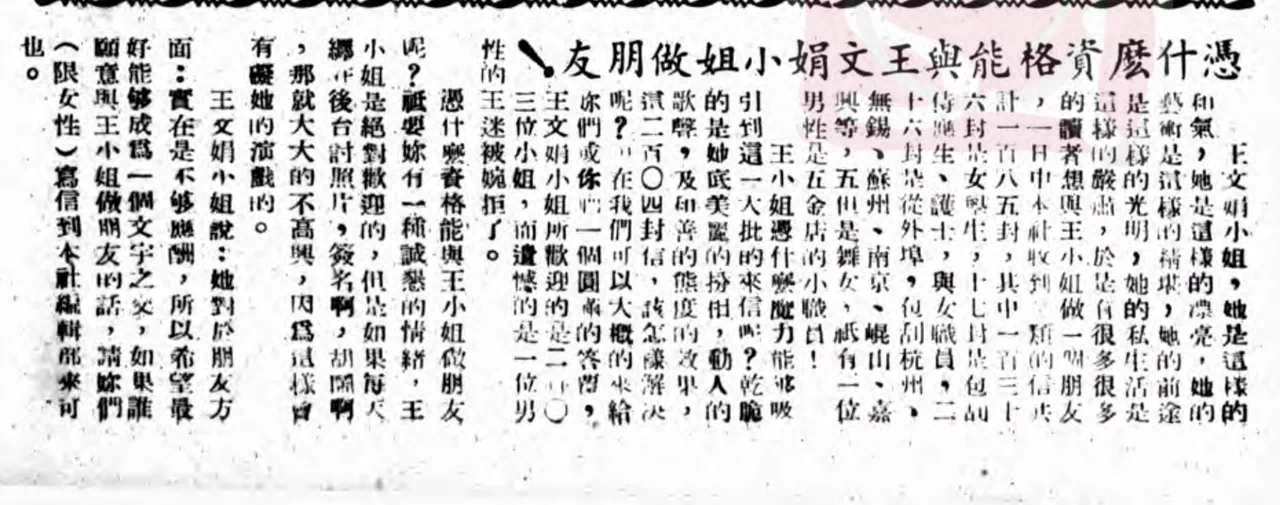 憑什麼資格能與王文娟小姐做朋友!
王文娟小姐,她是這樣的
和氣,她是這樣的漂亮,她的
藝術是這樣的精堪,她的前途
是這樣的光明,她的私生活是
這樣的嚴肅,於是有很多很多
的讀者想與王小姐做一個朋友
,一日中本社收到 類的信共
計一百八五封,其中一百三十
六封是女學生,十七封是包括
侍應生、護士,與女職員,二
十六封是從外埠,包刮杭州、
無錫、蘇州、南京、崐山、嘉
興等,五但是舞女,祇有一位
男性是五金店的小職員!
王小姐憑什麼魔力能够吸
引到這一大批的來信呢?乾脆
的是她底美麗的扮相,動人的
歌聲,及和善的態度的效果,
這二百〇四封信,該怎樣解决
呢? 在我們可以大概的來給
妳們或你們一個圓滿的答覆,
王文娟小姐所歡迎的是二百〇
三位小姐,而遺憾的是一位男
性的王迷被婉拒了。
憑什麼資格能與王小姐做朋友
呢?祇要妳有一種誠懇的情緒,王
小姐是絕對歡迎的,但是如果每天
纏在後台討照片,簽名啊,胡鬧啊
,那就大大的不高興,因爲這樣會
有礙她的演戲的。
王文娟小姐說:她對於朋友方
面:實在是不够應酬,所以希望最
好能够成爲一個文字之交,如果誰
願意與王小姐做朋友的話,請妳們
(限女性)寫信到本社編輯部來可
也。